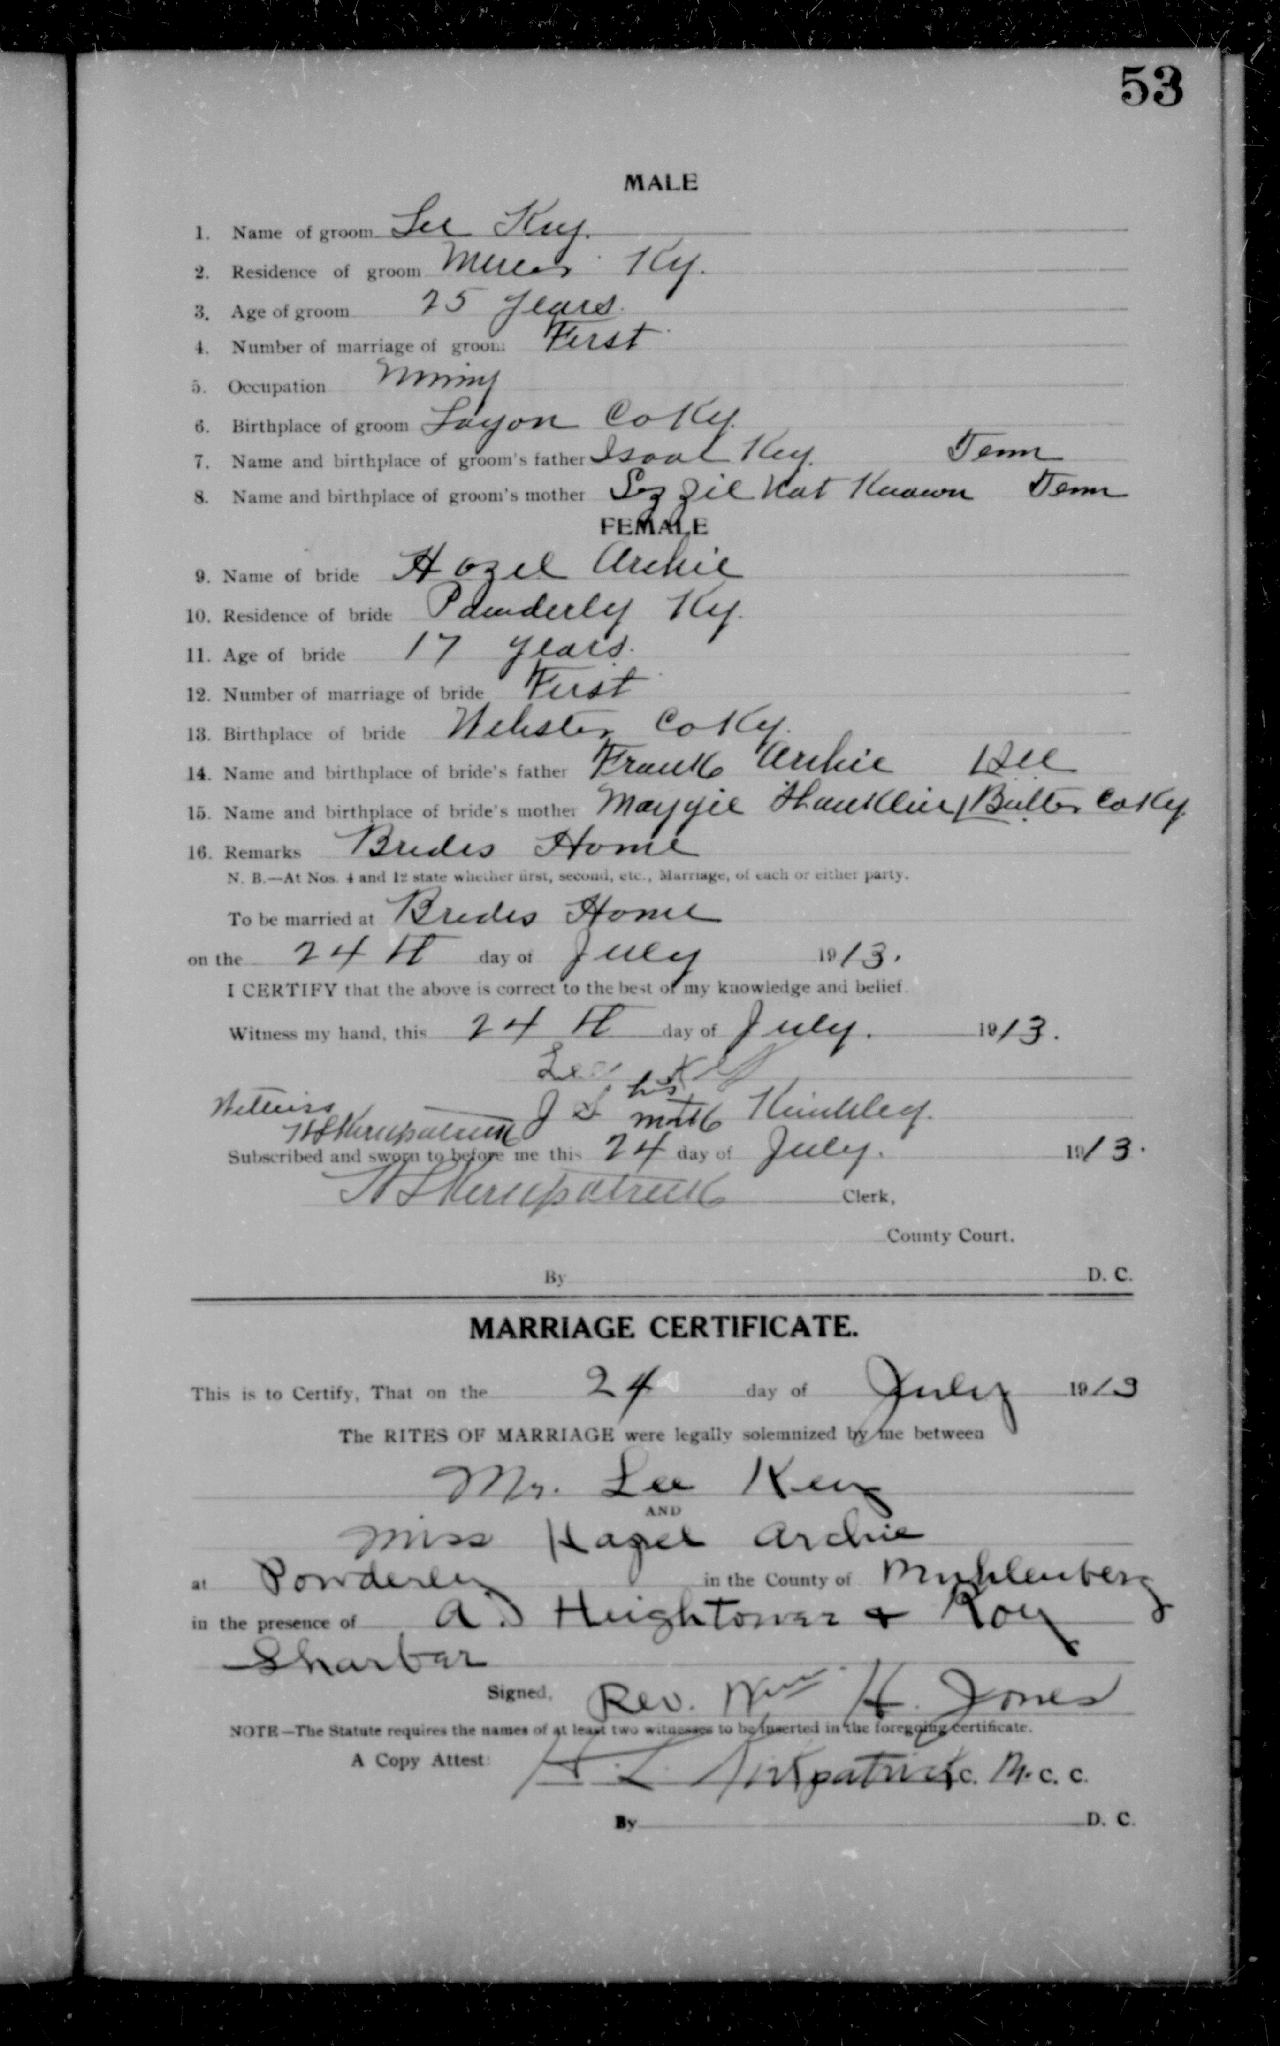 53
MALE
1. Name of groom Lee Key.
2. Residence of groom Mercer Ky.
3. Age of groom 25 years.
4. Number of marriage of groom First
5. Occupation Mining
6. Birthplace of groom Layon Co Ky.
7. Name and birthplace of groom's father Isaac Key. Tenn
8. Name and birthplace of groom's mother Lizzie Not Known Tenn
FEMALE
9. Name of bride Hazel Archie
10. Residence of bride Powderly Ky.
11. Age of bride 17 years.
12. Number of marriage of bride First
13. Birthplace of bride Webster Co Ky.
14. Name and birthplace of bride's father Frank Archie
15. Name and birthplace of bride's mother Maggie Butler Co Ky.
16. Remarks Brides Home
N. B.—At Nos. 4 and 12 state whether first, second, etc., Marriage, of each or either party.
To be married at Brides Home
on the 24th day of July 1913.
I CERTIFY that the above is correct to the best of my knowledge and belief.
Witness my hand, this 24th day of July. 1913.
Lee Key
Witness J S his mark Kimbley.
H L Kirkpatrick
Subscribed and sworn to before me this 24 day of July. 1913.
H L Kirkpatrick Clerk,
County Court.
By D. C.
MARRIAGE CERTIFICATE.
This is to Certify, That on the 24 day of July 1913
The RITES OF MARRIAGE were legally solemnized by me between
Mr. Lee Key
AND
Miss Hazel Archie
at Powderly in the County of Muhlenberg
in the presence of A. J Hightower + Roy
Sharber
Signed, Rev. Wm H. Jones
NOTE—The Statute requires the names of at least two witnesses to be inserted in the foregoing certificate.
A Copy Attest: H. L. Kirkpatrick C. M. C. C.
By D. C.